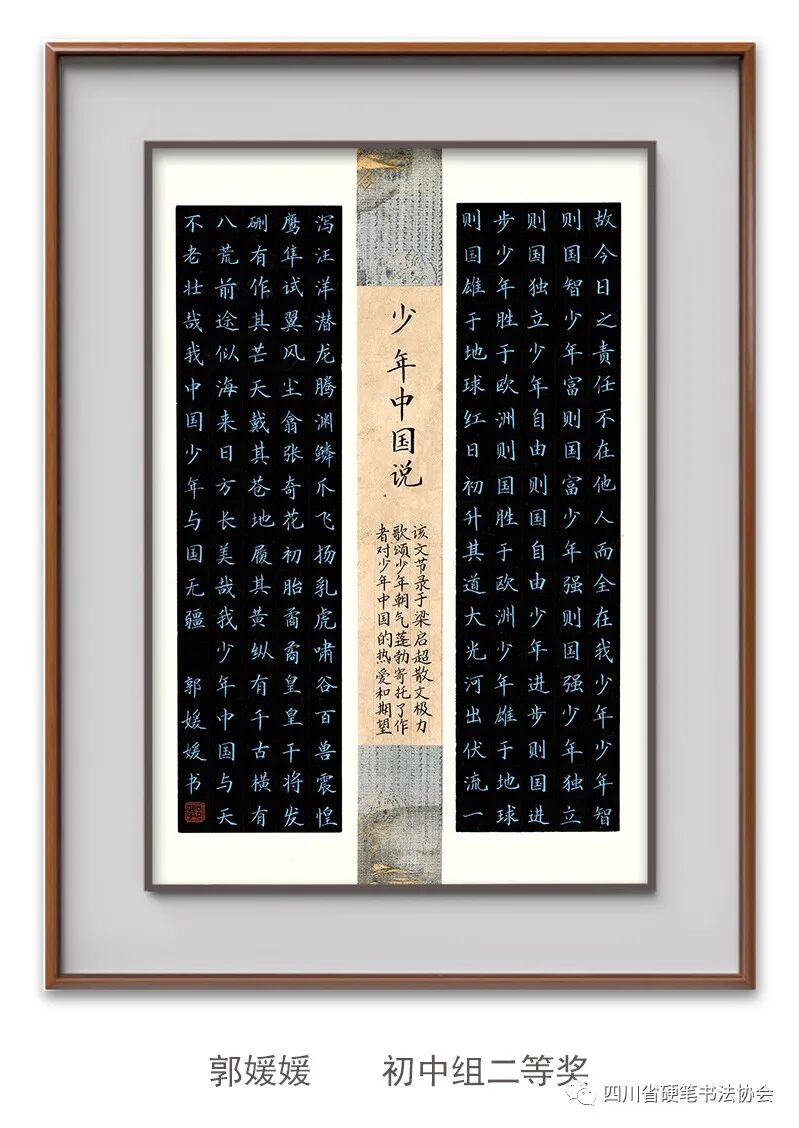 故今日之责任不在他人而全在我少年少年智
则国智少年富则国富少年强则国强少年独立
则国独立少年自由则国自由少年进步则国进
步少年胜于欧洲则国胜于欧洲少年雄于地球
则国雄于地球红日初升其道大光河出伏流一
少年中国说
该文节录于梁启超散文极力
歌颂少年朝气蓬勃寄托了作
者对少年中国的热爱和期望
泻汪洋潜龙腾渊鳞爪飞扬乳虎啸谷百兽震惶
鹰隼试翼风尘翕张奇花初胎矞矞皇皇干将发
硎有作其芒天戴其苍地履其黄纵有千古横有
八荒前途似海来日方长美哉我少年中国与天
不老壮哉我中国少年与国无疆 郭媛媛书
郭媛媛 初中组二等奖
四川省硬笔书法协会